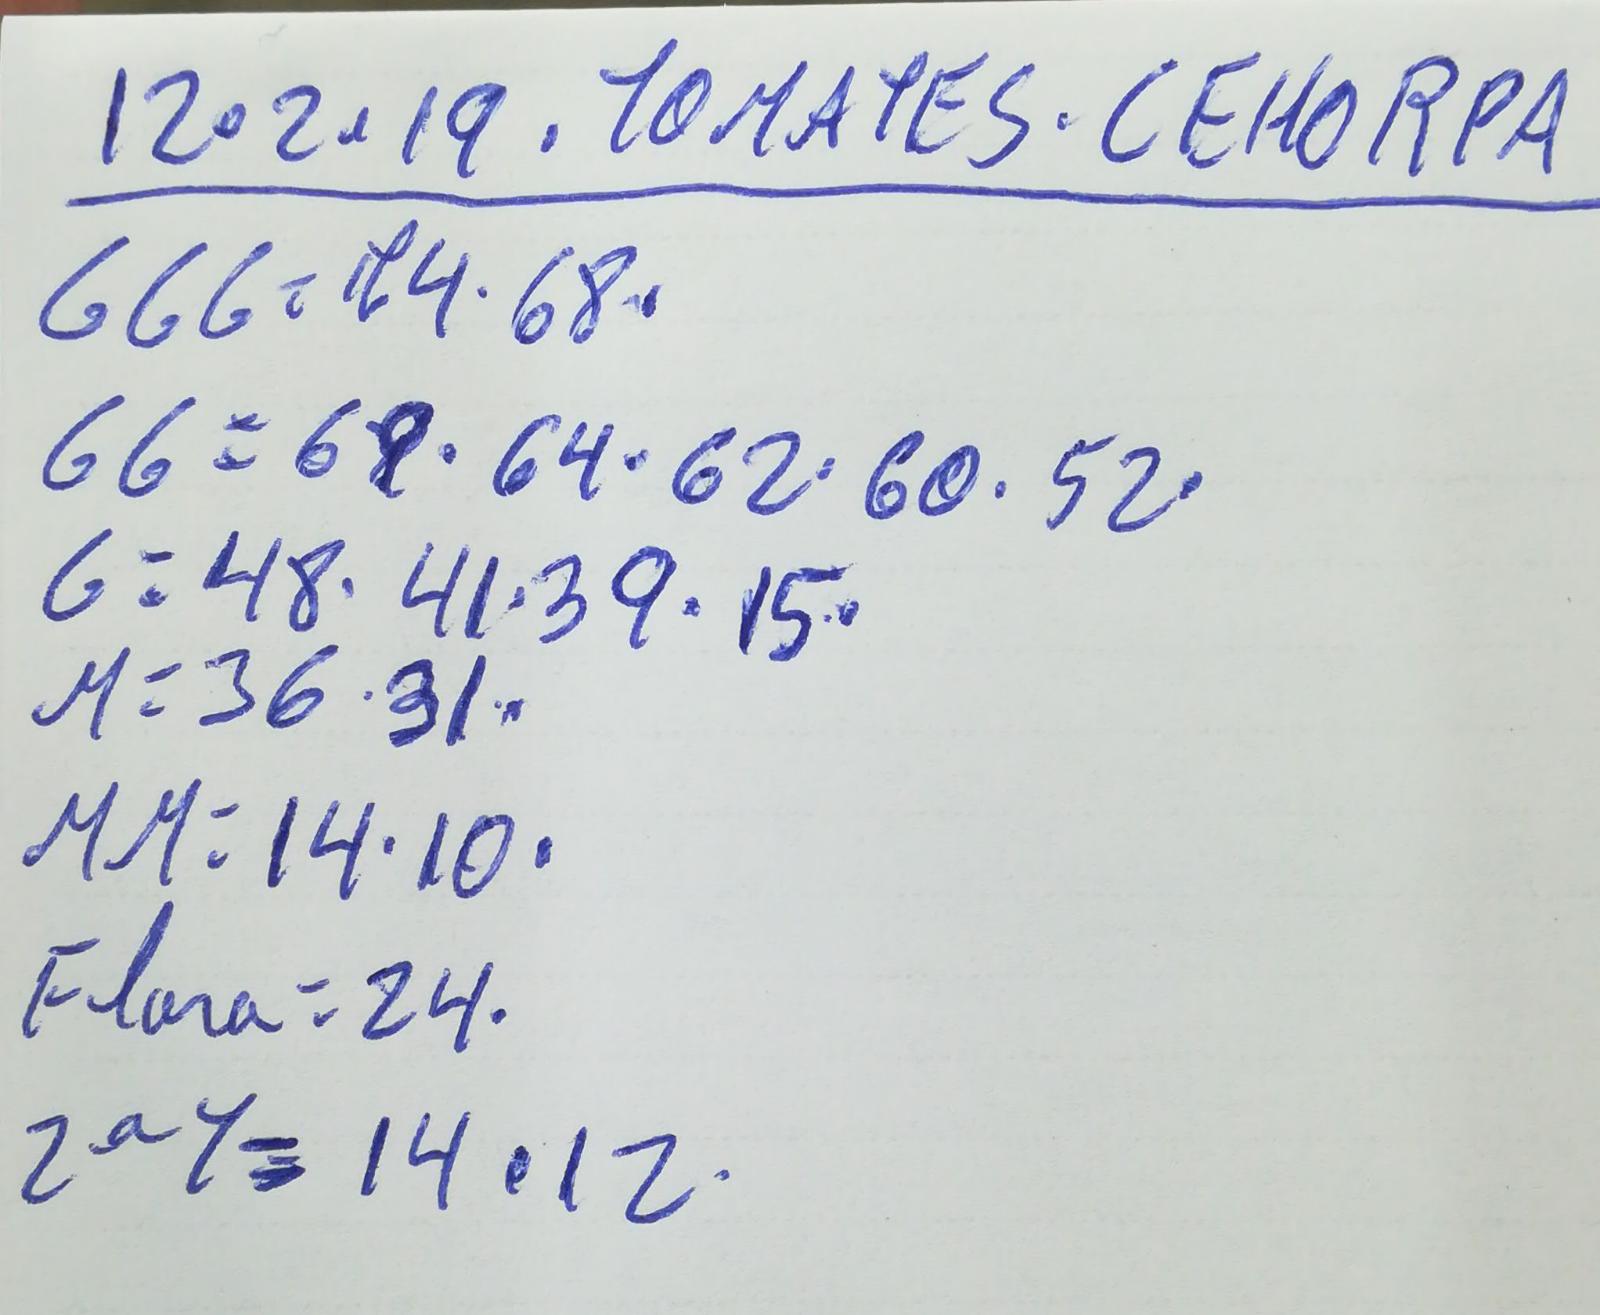 12.2.19. TOMATES. CEHORPA
GGG = 74. 68.
GG = 68. 64. 62. 60. 52.
G = 48. 41. 39. 15.
M = 36. 31.
MM = 14. 10.
Flora = 24.
2ª Y = 14. 12.